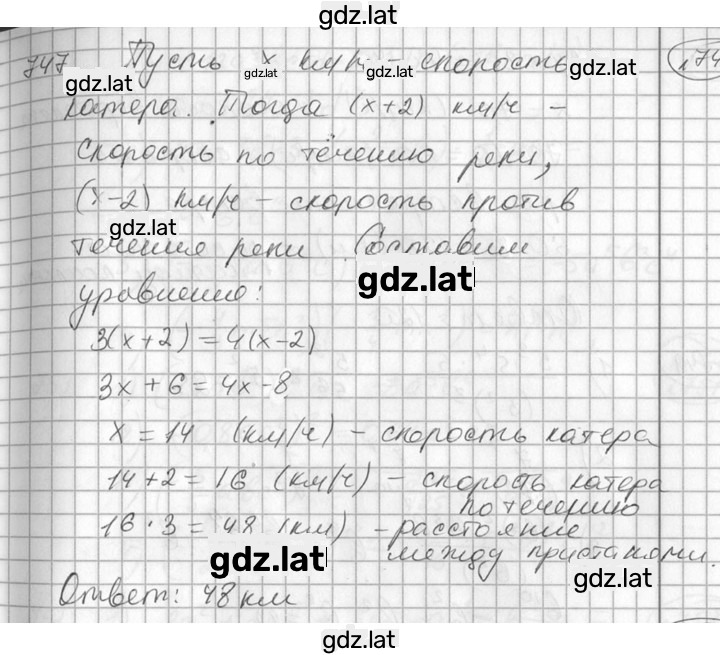 gdz.lat
747 Пусть x км/ч – скорость
gdz.lat gdz.lat gdz.lat gdz.lat
катера. Тогда (x+2) км/ч –
скорость по течению реки,
(x-2) км/ч – скорость против
gdz.lat
течения реки. Составим
gdz.lat
уравнение:
3(x+2)=4(x-2)
3x+6=4x-8
x=14 (км/ч) – скорость катера
14+2=16 (км/ч) – скорость катера
по течению
16·3=48 (км) – расстояние
между пристанями.
gdz.lat
gdz.lat
Ответ: 48 км
gdz.lat